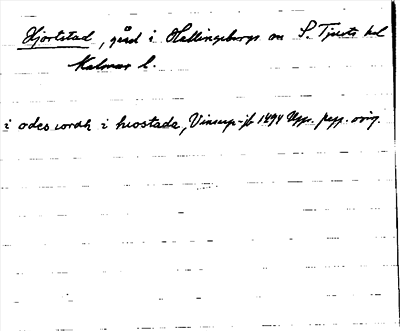 Hjortstad, gård i Hallingebergs sn S. Tjusts hd
Kalmar l.
i odes i hiostada, Vinsarp-jb 1494 Upps. papp. orig.